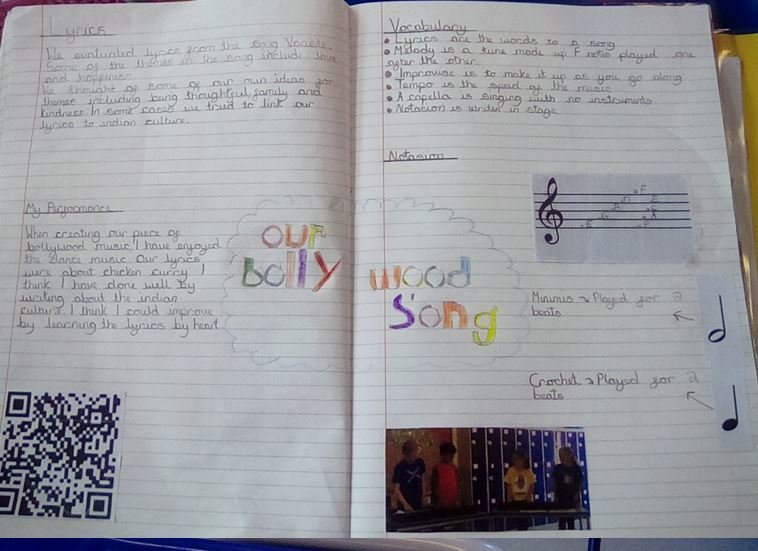 Lyrics
We evaluated lyrics from the song Vaaste.
Some of the themes in the song include love
and happiness.
We thought of some of our own ideas for
themes including being thoughtful, family and
kindness. In some cases we tried to link our
lyrics to indian culture.
My Performance
When creating our piece of
bollywood music I have enjoyed
the dance music. Our lyrics
were about chicken curry. I
think I have done well by
writing about the indian
culture. I think I could improve
by learning the lyrics by heart.
Our
bolly wood
Song
Vocabulary
• Lyrics are the words to a song
• Melody is a tune made up F notes played one
after the other.
• Improvise is to make it up as you go along
• Tempo is the spead of the music
• A capella is singing with no instruments
• Notasion is writen in stage
Notasion
E G A D F
Minimis → Played for 2
beats
Crochet → Played for 2
beats